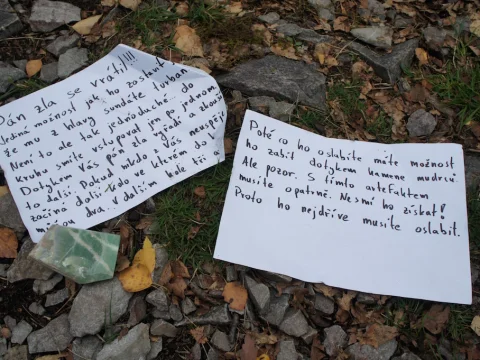 Pán zla se vrátil!!!!
Jediná možnost jak ho zastavit
že mu z hlavy sundáte turban
Není to ale tak jednoduché. do
kruhu smíte vstupovat jen po jednom
Dotykem Vás pán zla vyřadí a zkouší
to další. Pokud nikdo z Vás neuspěje
začíná další kolo ve kterém do
mohou dva. v dalším kole tři
Poté co ho oslabíte máte možnost
ho zabít dotykem kamene mudrců.
Ale pozor. S tímto artefaktem
musíte opatrně. Nesmí ho získat!
Proto ho nejdříve musíte oslabit.